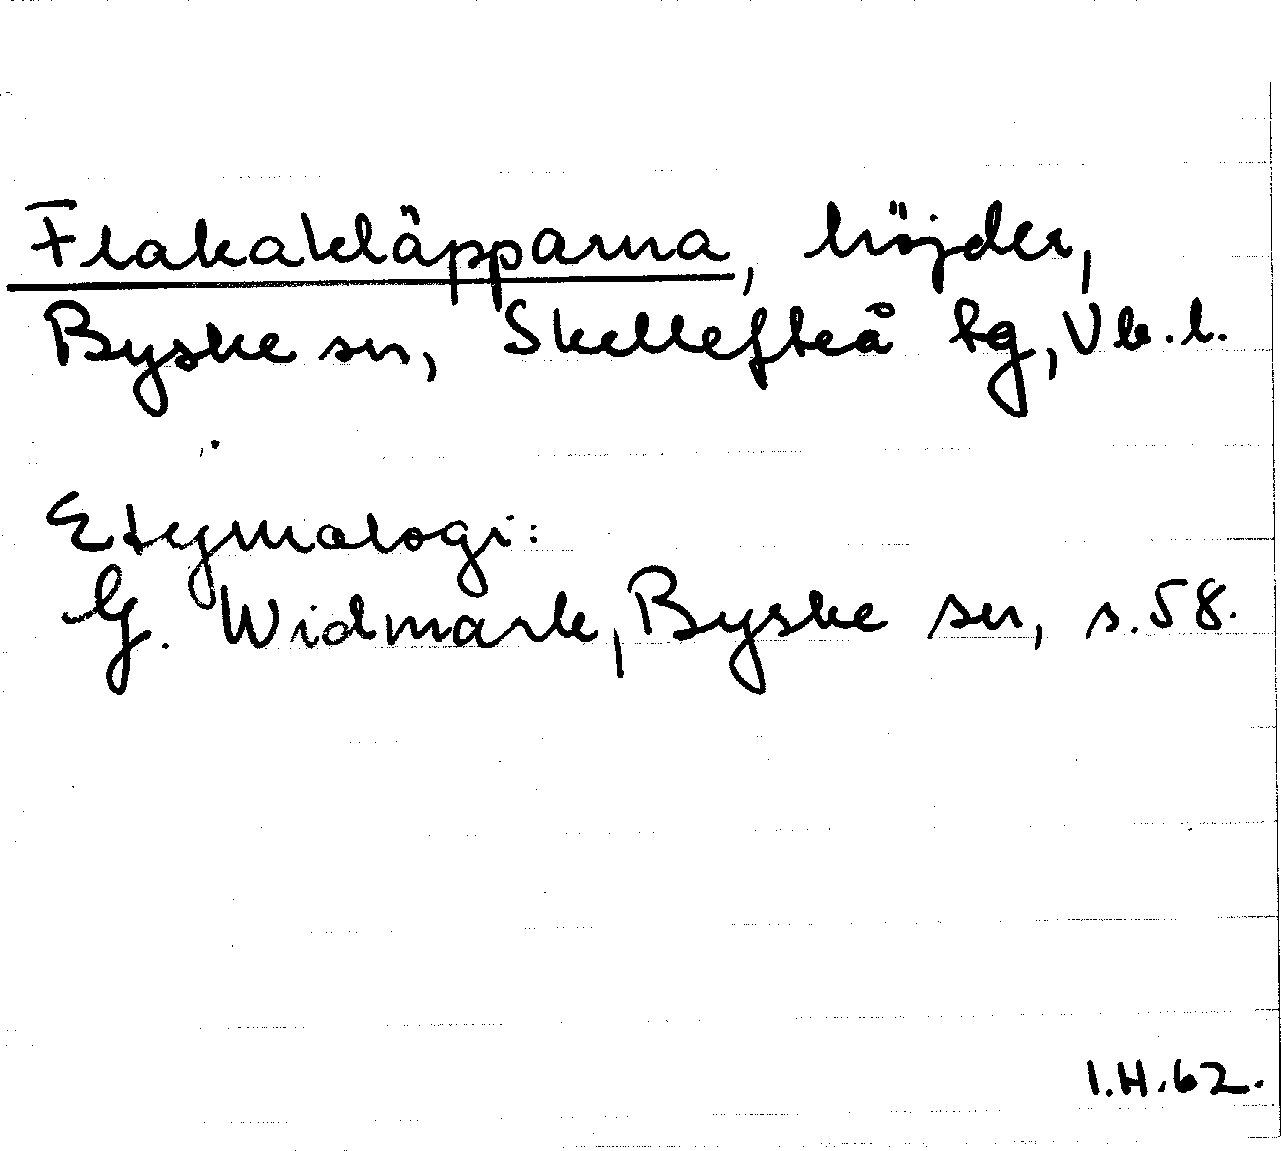 Flakakläpparna, höjder,
Byske sn, Skellefteå tg, Vb. l.
Etymologi:
G. Widmark, Byske sn, s. 58.
I.H. 62.